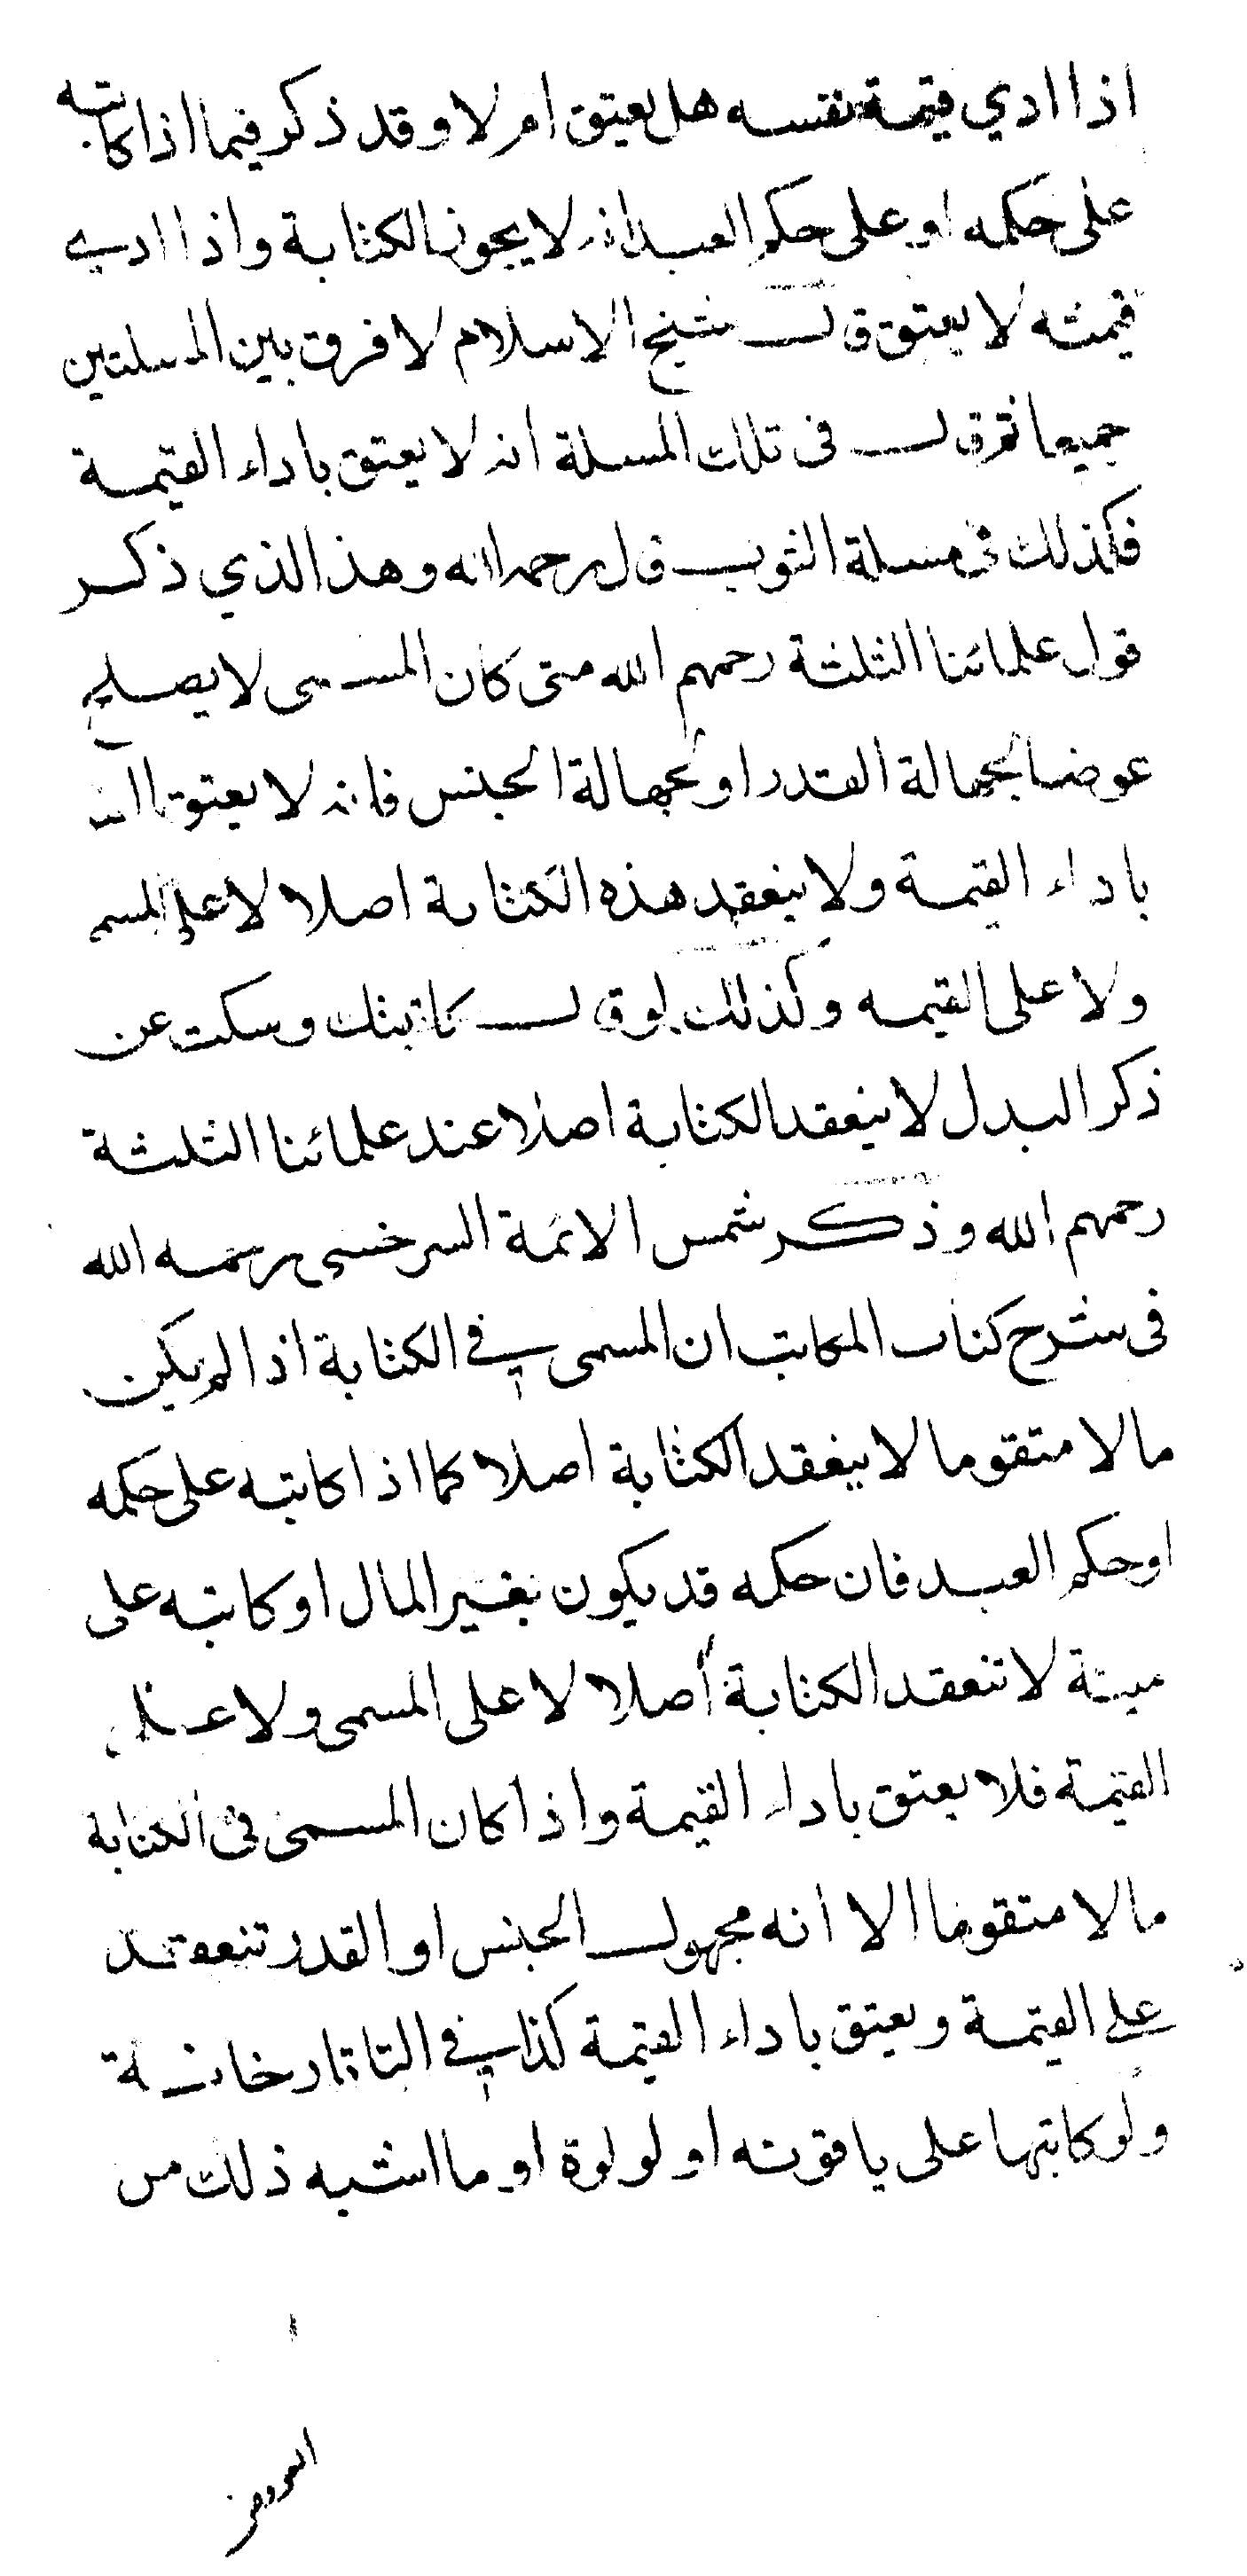 اذا ادي قيمة نفسه هل يعتق ام لا وقد ذكر فيما اذا كاتبه
على حكمه او على حكم العبد انه لا يجوز الكتابة واذا ادى
قيمته لا يعتق قال شيخ الاسلام لا فرق بين المسلتين
جميعا ثم قال فى تلك المسلة انه لا يعتق باداء القيمة
فكذلك فى مسلة الثوب قال رحمه الله وهذا الذي ذكر
قول علمائنا الثلثة رحمهم الله متى كان المسمى لا يصلح
عوضا لجهالة القدر او لجهالة الجنس فانه لا يعتق
باداء القيمة ولا ينعقد هذه الكتابة اصلا لا على المسمى
ولا على القيمه وكذلك لو قال كاتبتك وسكت عن
ذكر البدل لا ينعقد الكتابة اصلا عند علمائنا الثلثة
رحمهم الله وذكر شمس الائمة السرخسى رحمه الله
فى شرح كتاب المكاتب ان المسمى في الكتابة اذا لم يكن
مالا متقوما لا ينعقد الكتابة اصلا كما اذا كاتبه على حكمه
او حكم العبد فان حكمه قد يكون بغير المال او كاتبه على
ميتة لا تنعقد الكتابة أصلا لا على المسمى ولا على
القيمة فلا يعتق باداء القيمة واذا كان المسمى فى الكتابة
مالا متقوما الا انه مجهول الجنس او القدر تنعقد
على القيمة ويعتق باداء القيمة كذا في التاتارخانية
ولو كاتبها على ياقوته او لولوة او ما اشبه ذلك من
العروض